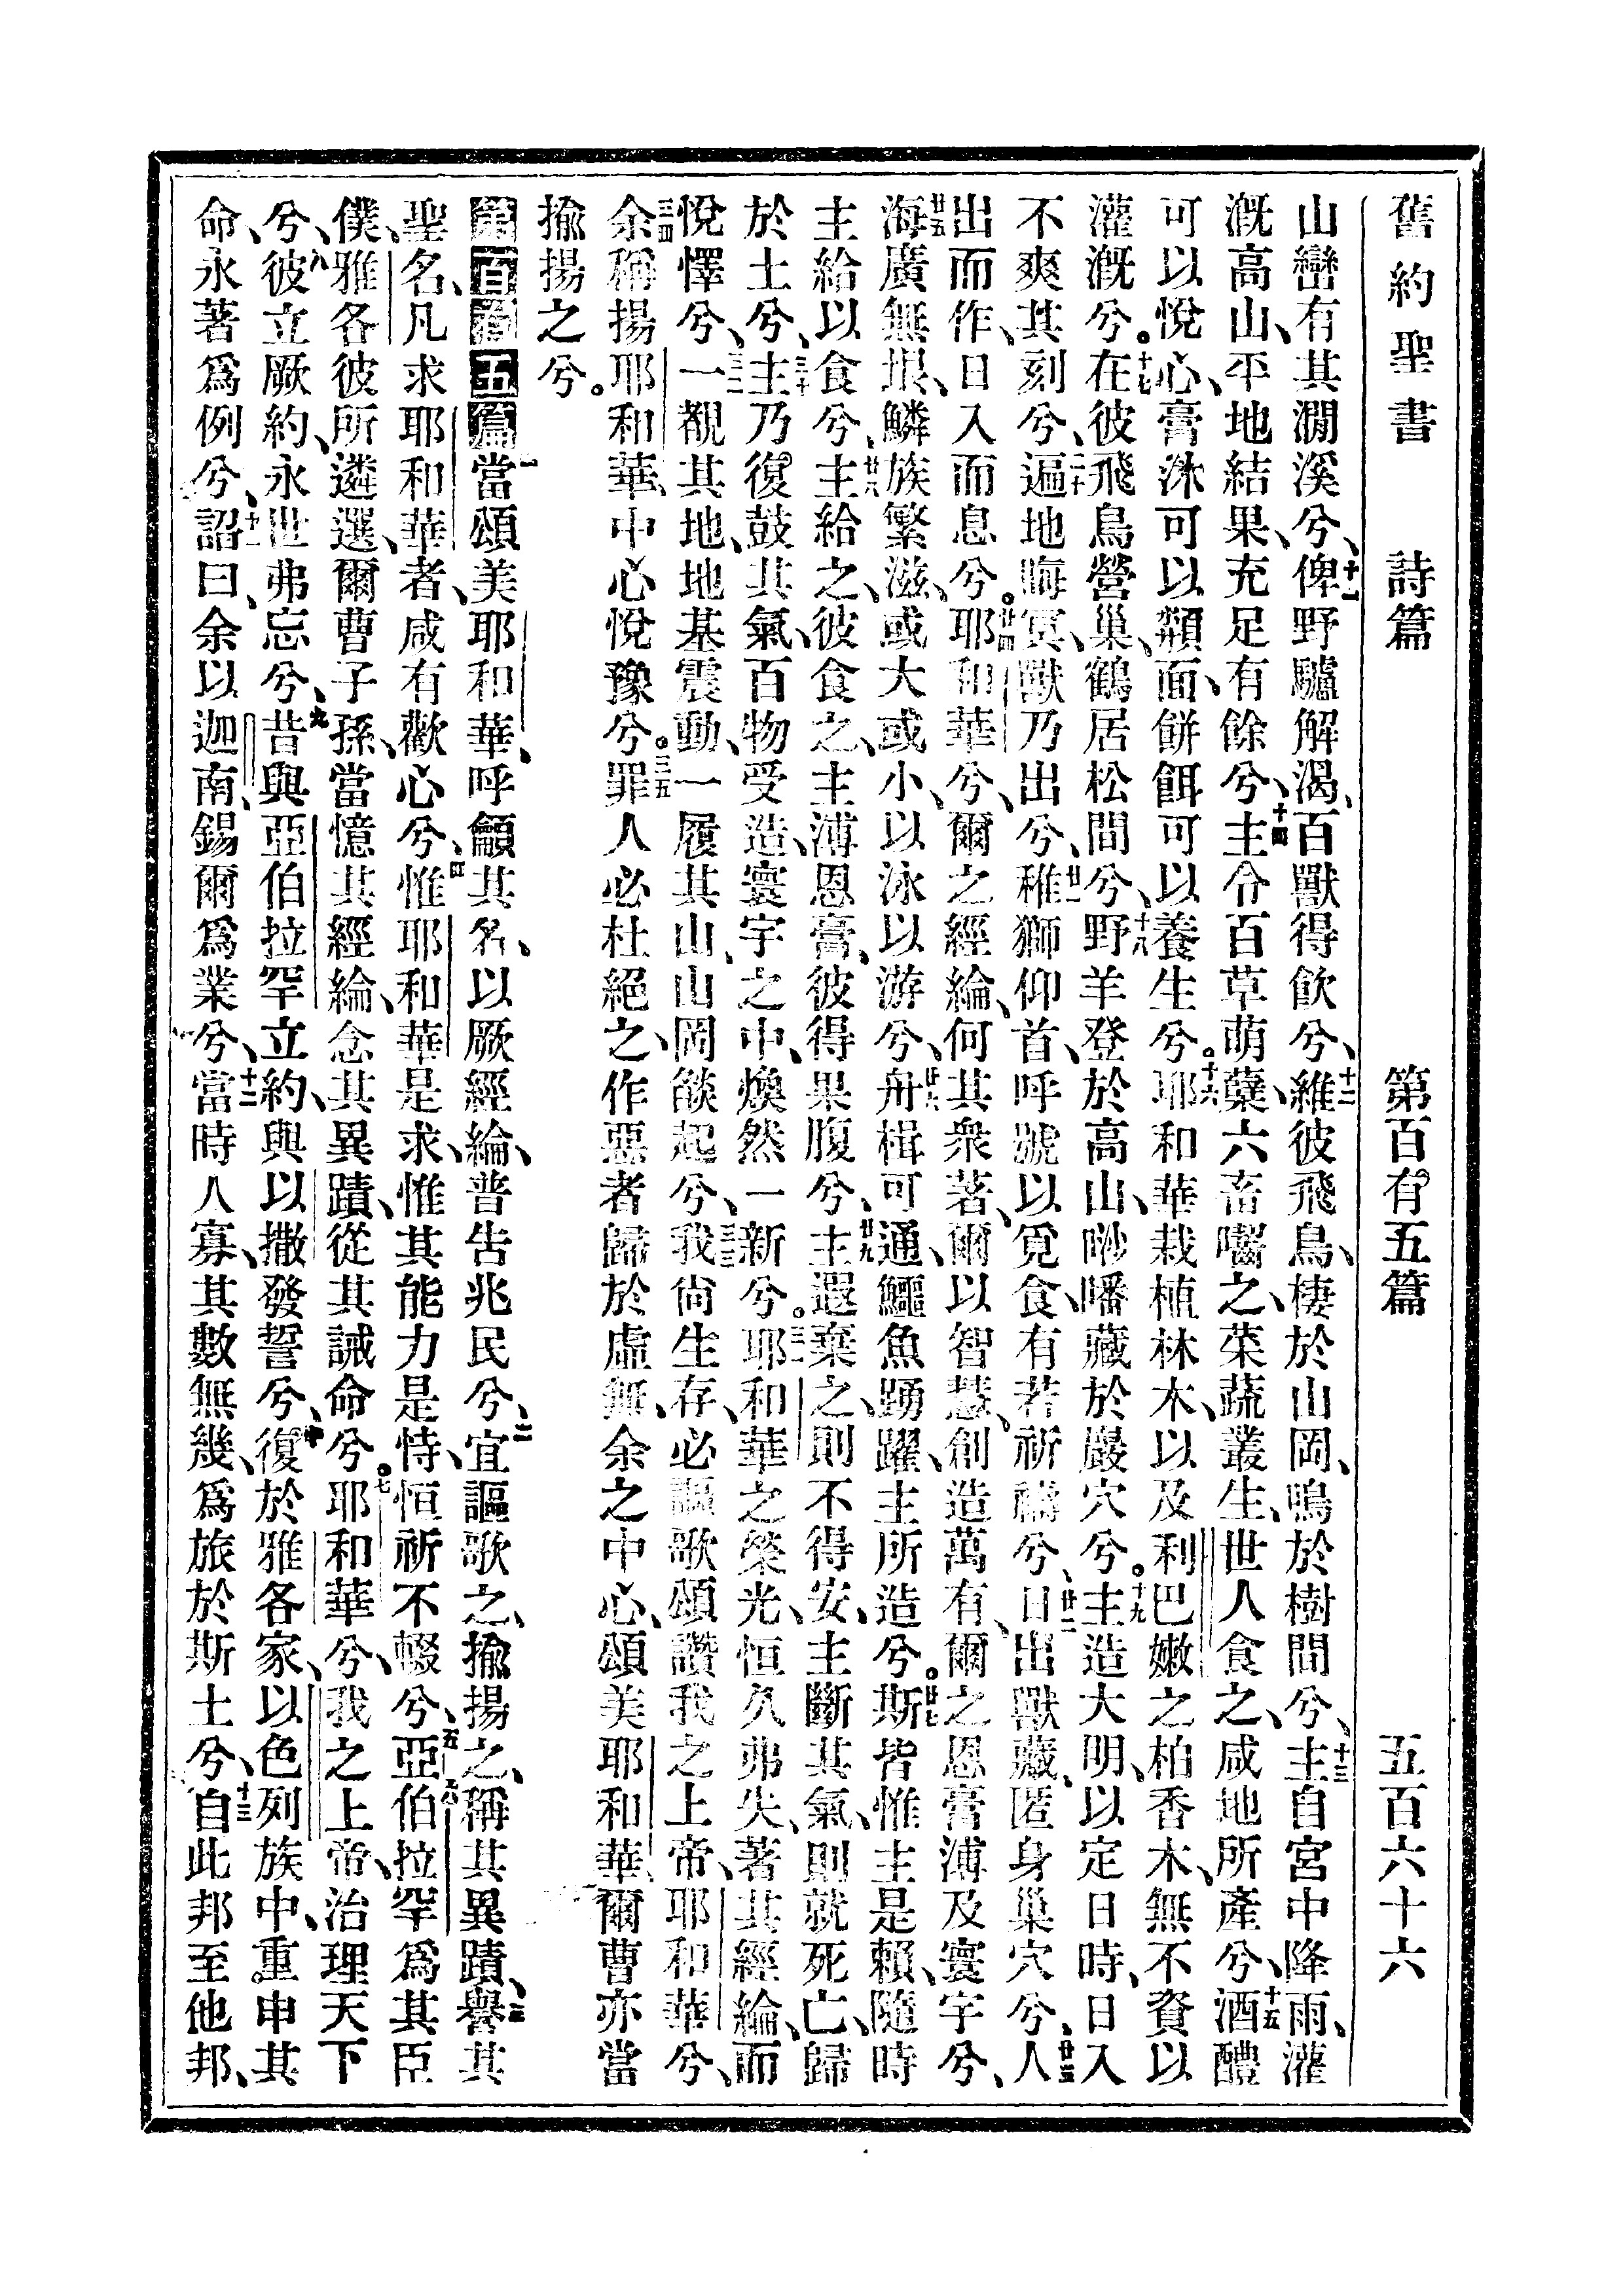 舊約聖書 詩篇 第百有五篇 五百六十六
山巒有其澗溪兮、十一俾野驢解渴、百獸得飮兮、十二維彼飛鳥、棲於山岡、鳴於樹間兮、十三主自宮中降雨、灌
漑高山、平地結果、充足有餘兮、十四主令百草萌蘖、六畜嚼之、菜蔬叢生、世人食之、咸地所產兮、十五酒醴
可以悅心、膏沐可以頮面、餠餌可以養生兮。十六耶和華栽植林木、以及利巴嫩之柏香木、無不資以
灌漑兮。十七在彼飛鳥營巢、鶴居松間兮、十八野羊登於高山、𡄴㗭藏於巖穴兮。十九主造大明、以定日時、日入
不爽其刻兮、二十遍地晦冥、獸乃出兮、廿一稚獅仰首、呼號以覓食、有若祈禱兮、廿二日出獸藏、匿身巢穴兮、廿三人
出而作、日入而息兮。廿四耶和華兮、爾之經綸、何其衆著、爾以智慧、創造萬有、爾之恩膏溥及寰宇兮、
廿五海廣無垠、鱗族繁滋、或大或小、以泳以游兮、廿六舟楫可通、鱷魚踴躍、主所造兮。廿七斯皆惟主是賴、隨時
主給以食兮、廿八主給之、彼食之、主溥恩膏、彼得果腹兮、廿九主遐棄之、則不得安、主斷其氣、則就死亡、歸
於土兮、三十主乃復鼓其氣、百物受造、寰宇之中、煥然一新兮。三一耶和華之榮光、恒久弗失、著其經綸、而
悅懌兮、三二一覩其地、地基震動、一履其山、山岡燄起兮、三三我尙生存、必謳歌頌讚我之上帝、耶和華兮、
三四余稱揚耶和華、中心悅豫兮。三五罪人必杜絕之、作惡者歸於虛無、余之中心、頌美耶和華、爾曹亦當
揄揚之兮。
第百有五篇 一當頌美耶和華、呼籲其名、以厥經綸、普告兆民兮、二宜謳歌之、揄揚之、稱其異蹟、三譽其
聖名、凡求耶和華者、咸有歡心兮、四惟耶和華是求、惟其能力是恃、恒祈不輟兮、五六亞伯拉罕爲其臣
僕、雅各彼所遴選、爾曹子孫、當憶其經綸、念其異蹟、從其誡命兮。七耶和華兮、我之上帝、治理天下
兮、八彼立厥約、永世弗忘兮、九昔與亞伯拉罕立約、與以撒發誓兮、十復於雅各家、以色列族中、重申其
命、永著爲例兮、十一詔曰、余以迦南、錫爾爲業兮、十二當時人寡、其數無幾、爲旅於斯土兮、十三自此邦至他邦、